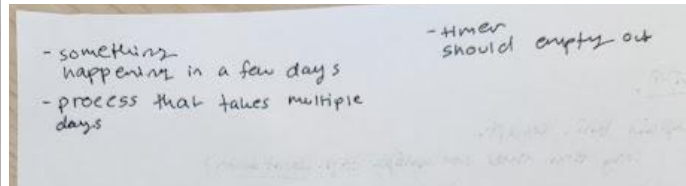 - something
happening in a few days
- process that takes multiple
days
- timer
should empty out